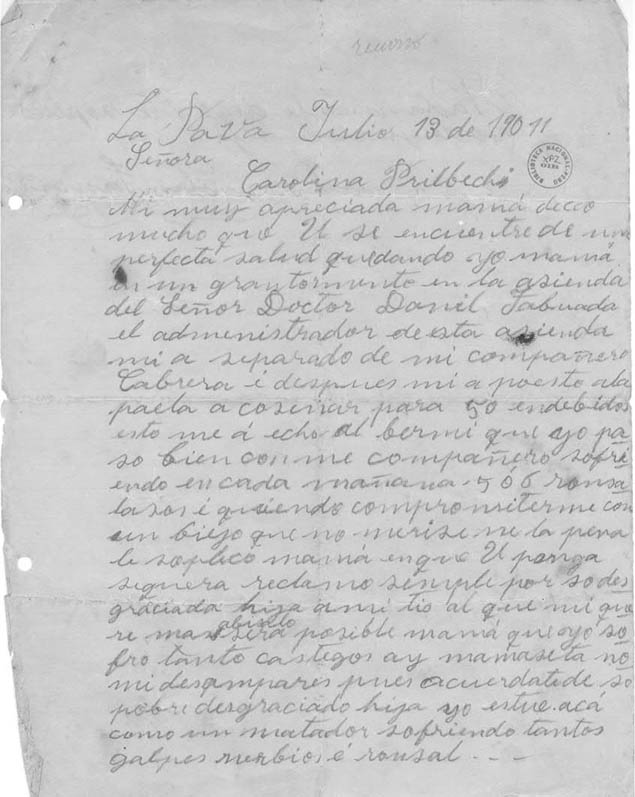 recurso
La Pava Julio 13 de 19011
Señora
BIBLIOTECA NACIONAL PERU
Carolina Prilbech
Mi muy apreciada mamá deceo
mucho que U se encuentre de un
perfecta salud quedando yo mamá
en un gran tormento en la asienda
del Señor Doctor Danil Tabuada
el admenistrador de esta asienda
mi a separado de mi compañero
Cabrera é despues mi a poesto ala
paela a cosenar para 50 endebidos
esto me á echo al bermi que yo pa
so bien con me compañero sofri
endo en cada mañana 5 ó 6 ronsa
lasos é queriendo compromiterme con
un biejo que no merise me la pena
le soplico mamá en que U ponga
seguera reclamo sempli por so des
graciada hija a mi tio al que mi que
re mas abuelo será posible mamá que yo so
fro tanto castegos ay mamaseta no
mi desampares pues acuerdate de so
pobre desgraciado hija yo estue acá
como un matador sofriendo tantos
galpes é ronsal - - -